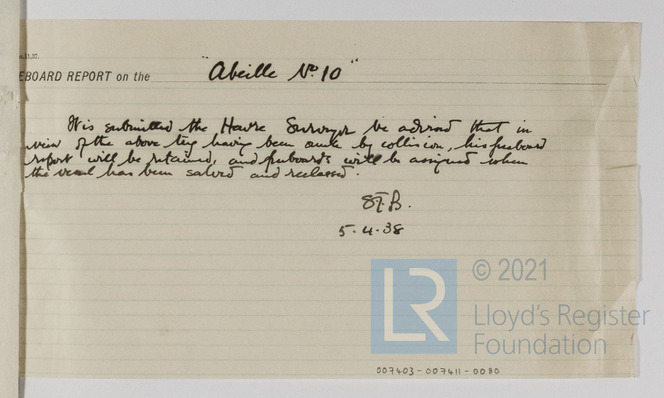 11.37.
EBOARD REPORT on the "Abeille No 10"
It is submitted the Havre Surveyor be advised that in
view of the above tug having been sunk by collision, his freeboard
report will be retained, and freeboards will be assigned when
the vessel has been salved and reclassed.
5.4.38
LR
© 2021
Lloyd's Register
Foundation
007403-007411-0080